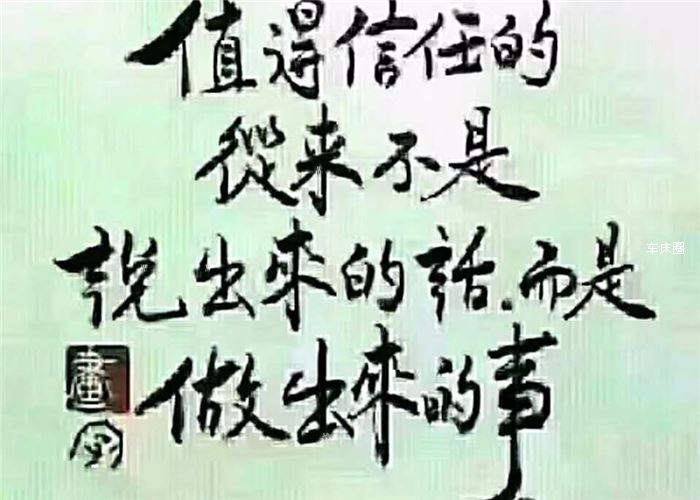 值得信任的
從来不是
說出來的話.而是
车床圈
做出來的事